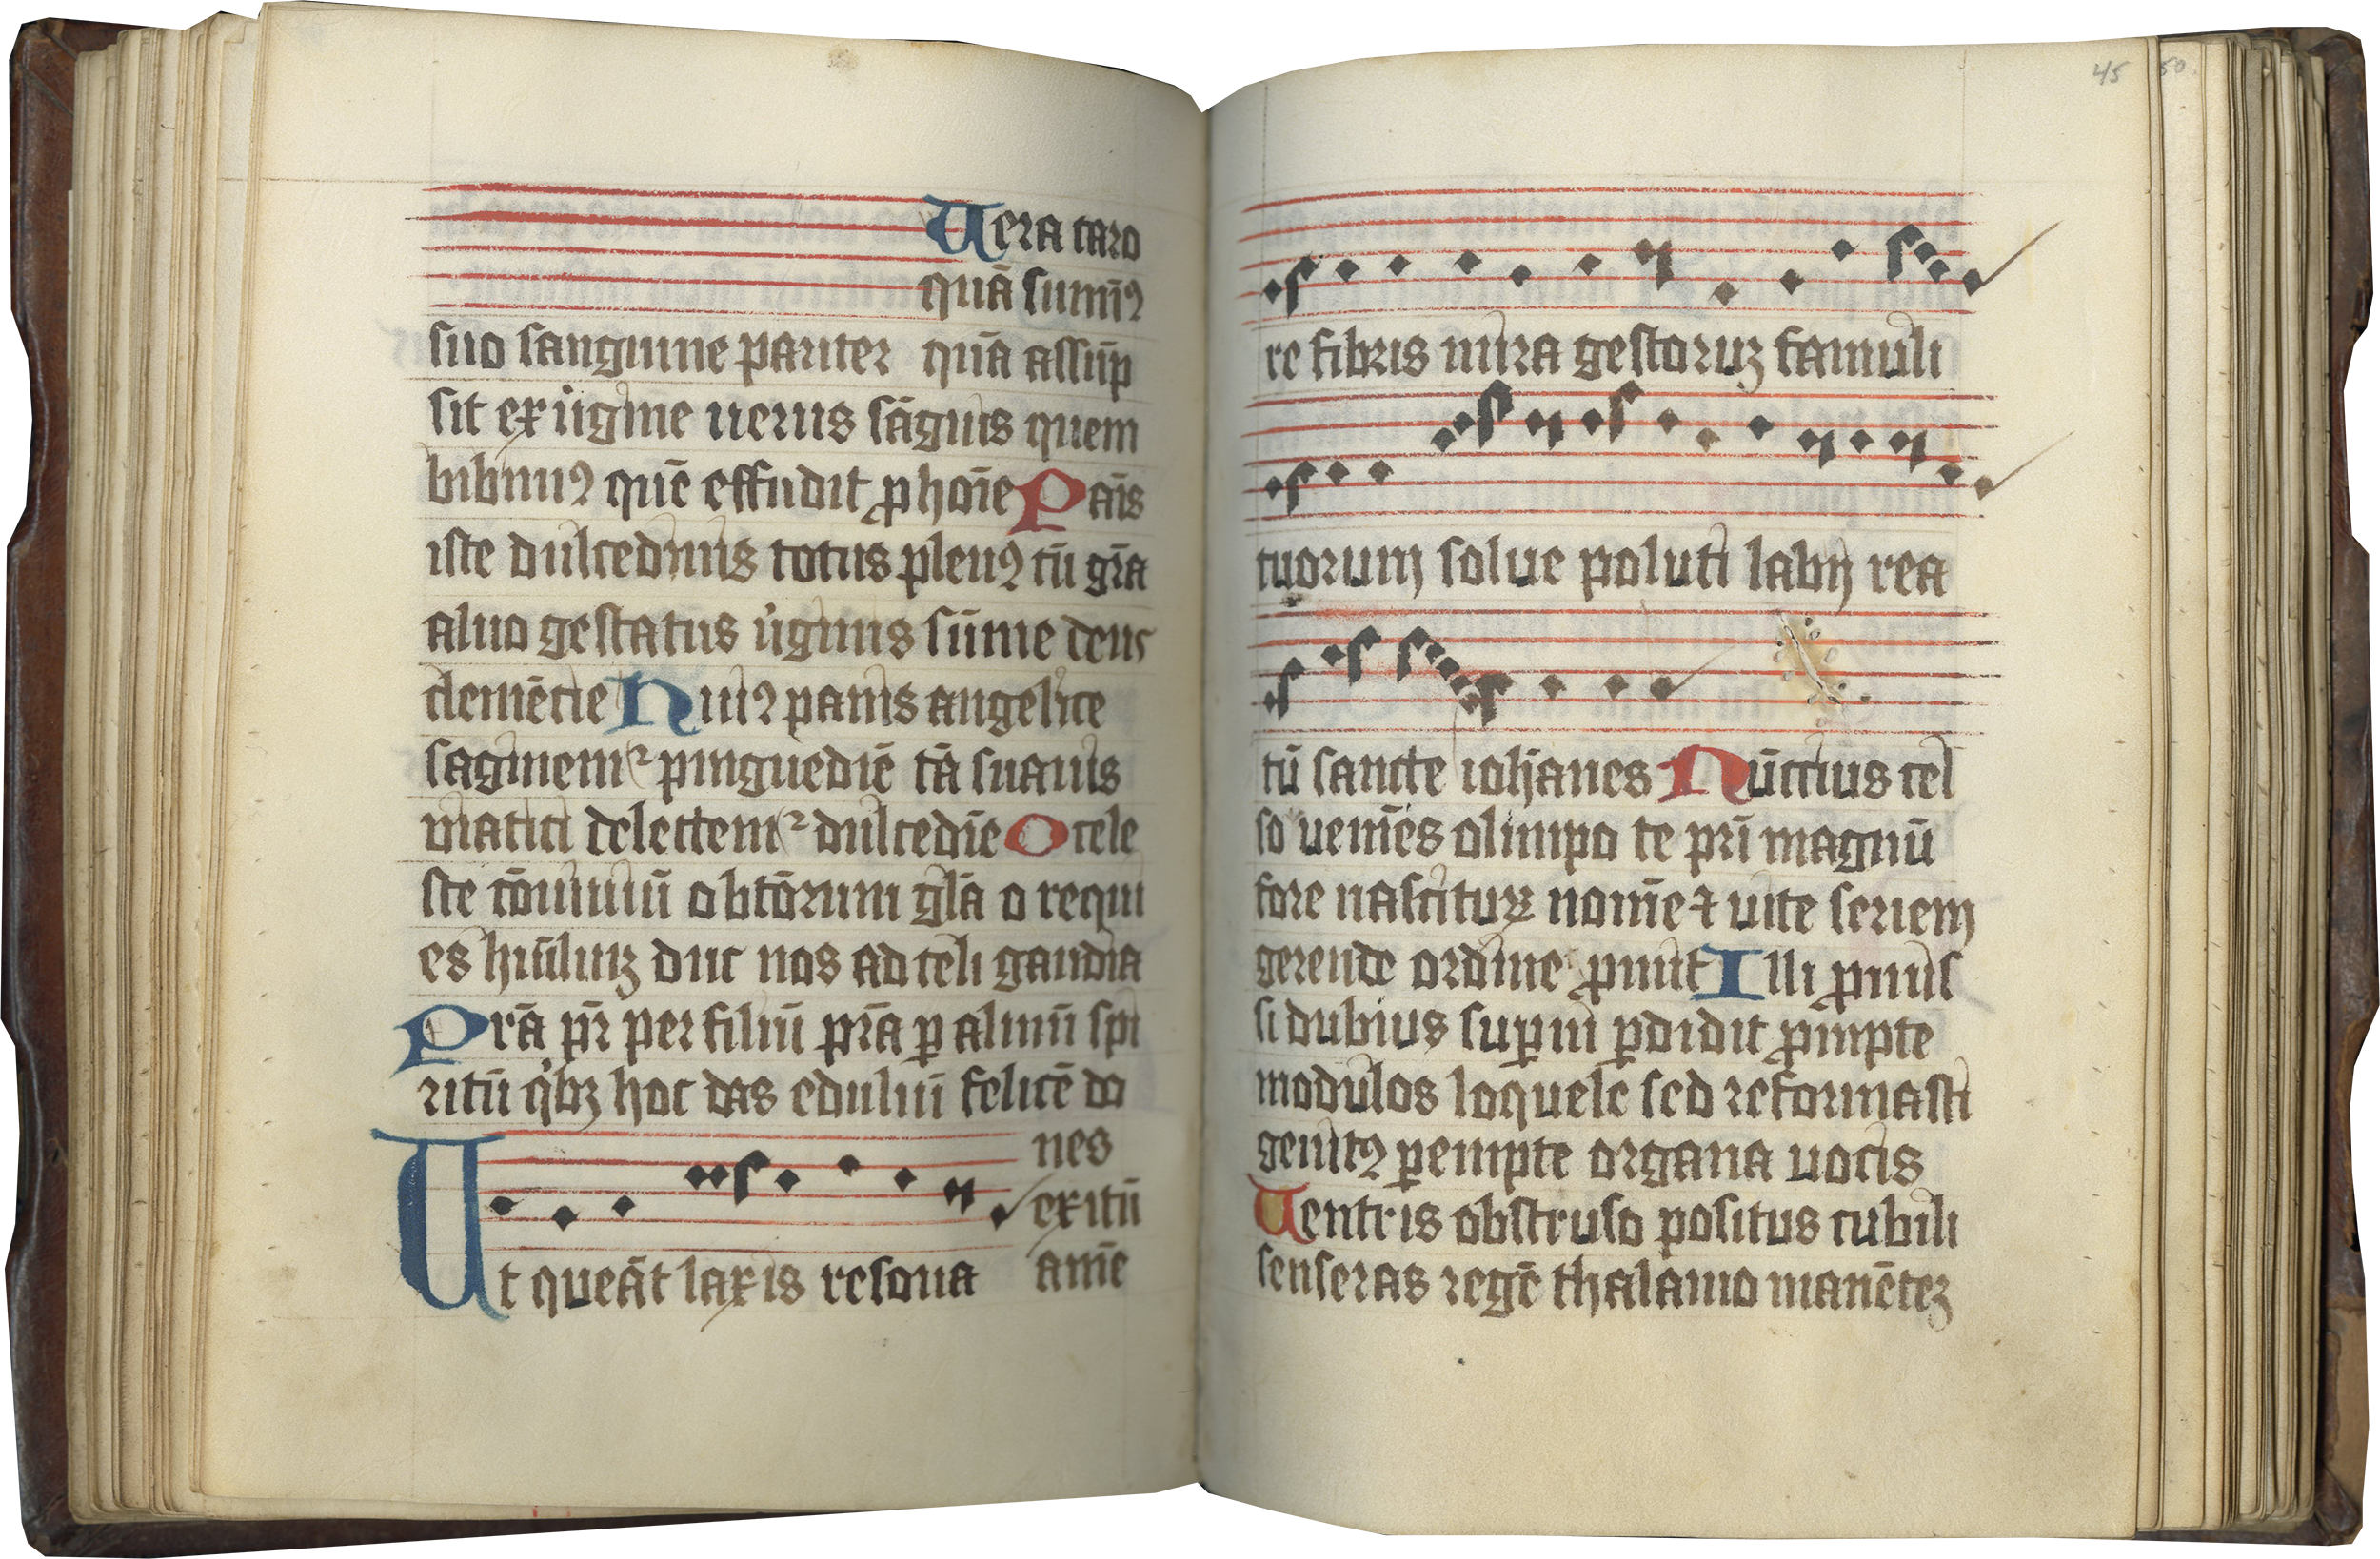 Uera caro
quā sumīꝰ
suo sanguine pariter quā assūp
sit ex uigīne uerus sāguis quem
bibimꝰ quē effudit ꝓ hoīe Pāis
iste dulcedinis totus plenꝰ tū grā
aluo gestatus uiginis sūme deus
clemēcie Huiꝰ panis angelice
saginemꝛ pinguedīe tā suauis
uiatici delectemꝛ dulcedīe O cele
ste cōuiuiū obtōrum glā o requi
es huīliuꝫ duc nos ad celi gaudia
Prā pr̄ per filiū prā ꝑ almū spi
ritū qͥbꝫ hoc das eduliū felicē do
nes
exitū
amē
Ut queāt laxis resona
45 50.
re fibris mira gestoruꝫ famuli
tuorum solue poluti labij rea
tū sancte iohanes Nūctius cel
so ueniēs olimpo te pr̄i magnū
fore nasciturꝫ nomē ⁊ uite seriem
gerende ordine ꝓmit Illi ꝓmis
si dubius suꝑni ꝑdidit ꝓmpte
modulos loquele sed reformasti
genitꝰ ꝑempte organa uocis
Uentris obstruso positus cubili
senseras regē thalamo manēteꝫ